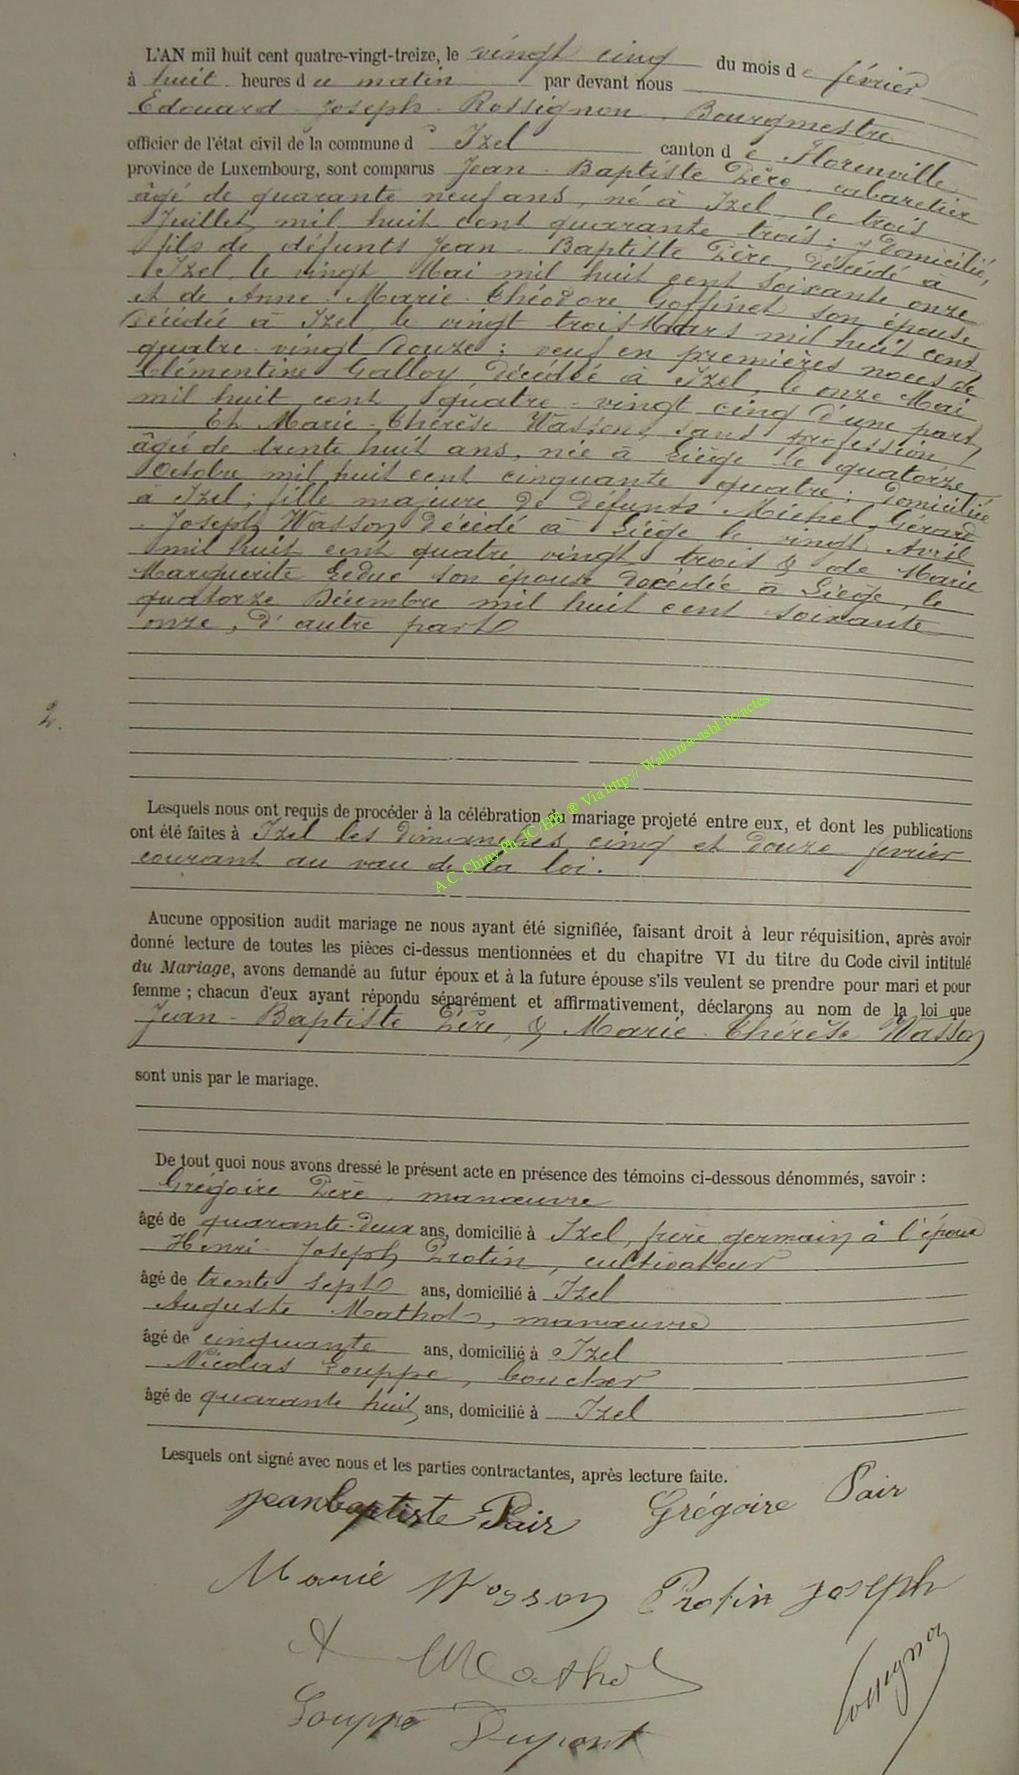 L'AN mil huit cent quatre-vingt-treize, le vingt cinq du mois de février
à huit heures du matin par devant nous
Edouard - Joseph - Rossignon, Bourgmestre
officier de l'état civil de la commune d' Izel canton de Florenville
province de Luxembourg, sont comparus Jean - Baptiste Père, cabaretier
âgé de quarante neuf ans, né à Izel, le trois
Juillet mil huit cent quarante trois; y Domicilié,
fils de défunts Jean - Baptiste Père, décédé à
Izel, le vingt Mai mil huit cent soixante onze
et de Anne - Marie - Théodore Goffinet son épouse,
Décédée à Izel, le vingt trois Mars mil huit cent
quatre - vingt Douze; veuf en premières noces de
Clémentine Galloy, Décédée à Izel, le onze Mai
mil huit cent quatre - vingt cinq d'une part,
Et Marie - Thérèse Wasson, sans profession,
âgée de trente huit ans, née à Liège le quatorze
Octobre mil huit cent cinquante quatre; Domiciliée
à Izel; fille majeure de Défunts Michel, Gerard
- Joseph Wasson Décédé à Liège le vingt Avril
mil huit cent quatre vingt trois & de Marie
Marguerite Leduc son épouse Décédée à Liège, le
quatorze Décembre mil huit cent soixante
onze, D'autre part
2.
Lesquels nous ont requis de procéder à la célébration du mariage projeté entre eux, et dont les publications
ont été faites à Izel les Dimanches cinq et douze fevrier
courant au vau de la loi.
A.C. Chiny Ph. JC HB ® Via http:// Wallonia-asbl.be/actes
Aucune opposition audit mariage ne nous ayant été signifiée, faisant droit à leur réquisition, après avoir
donné lecture de toutes les pièces ci-dessus mentionnées et du chapitre VI du titre du Code civil intitulé
du Mariage, avons demandé au futur époux et à la future épouse s'ils veulent se prendre pour mari et pour
femme ; chacun d'eux ayant répondu séparément et affirmativement, déclarons au nom de la loi que
Jean - Baptiste Père, & Marie - Thérèse Wasson
sont unis par le mariage.
De tout quoi nous avons dressé le présent acte en présence des témoins ci-dessous dénommés, savoir :
Grégoire Père, manœuvre
âgé de quarante-deux ans, domicilié à Izel, frère germain à l'époux
Henri - Joseph Protin, cultivateur
âgé de trente sept ans, domicilié à Izel
Auguste Mathot, manœuvre
âgé de cinquante ans, domicilié à Izel
Nicolas Louppe, boucher
âgé de quarante huit ans, domicilié à Izel
Lesquels ont signé avec nous et les parties contractantes, après lecture faite.
jean baptiste Pair Grégoire Pair
Marie Wasson Protin joseph
A Mathot
Louppe Dupont Rossignon